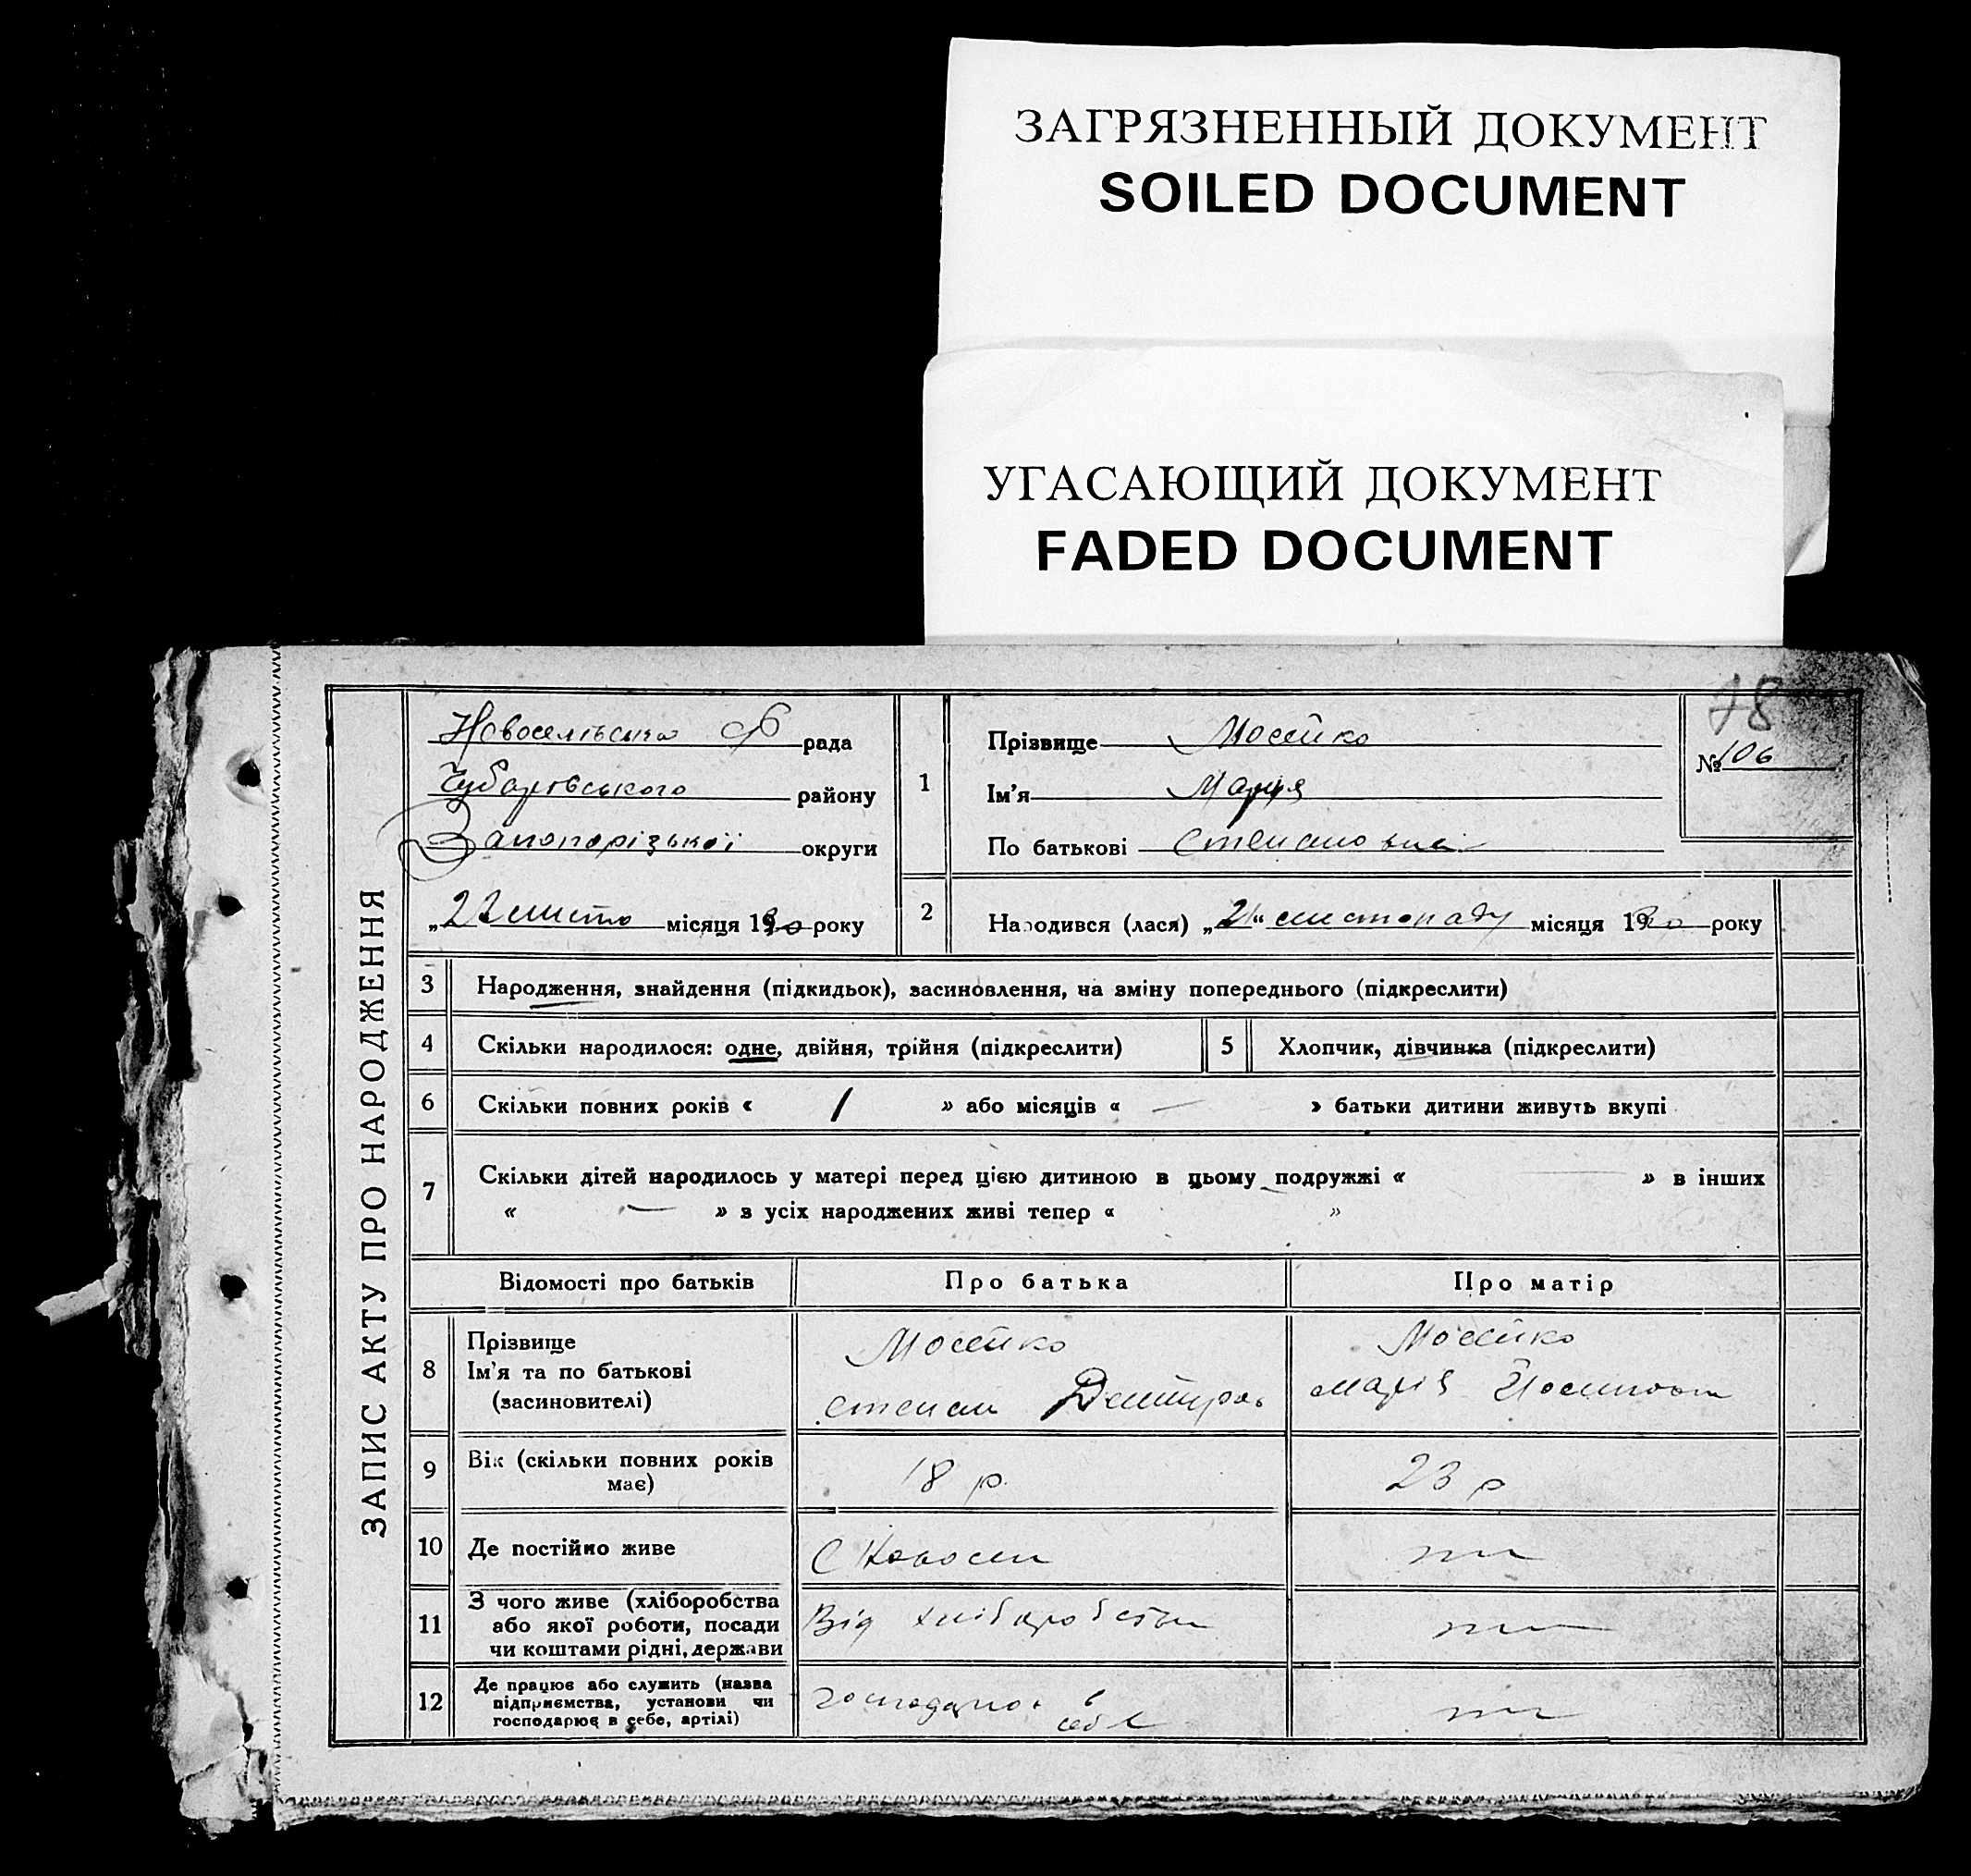 ЗАГРЯЗНЕННЫЙ ДОКУМЕНТ
SOILED DOCUMENT
УГАСАЮЩИЙ ДОКУМЕНТ
FADED DOCUMENT
78
ЗАПИС АКТУ ПРО НАРОДЖЕННЯ
Новосельська рада
Чубарівського району
Запорізької округи
„22 листо місяця 1930 року
1
Прізвище Мосейко
Ім'я Марія
По батькові Степановна
№ 106
2 Народився (лася) „21“ листопаду місяця 1930 року
3 Народження, знайдення (підкидьок), засиновлення, на зміну попереднього (підкреслити)
4 Скільки народилося: одне, двійня, трійня (підкреслити)
5 Хлопчик, дівчинка (підкреслити)
6 Скільки повних років « 1 » або місяців « — » батьки дитини живуть вкупі
7 Скільки дітей народилось у матері перед цією дитиною в цьому подружжі « — » в інших
« — » з усіх народжених живі тепер « »
Відомості про батьків Про батька Про матір
8 Прізвище Мосейко Мосейко
Ім'я та по батькові Степан Дмитров Марія Йосипов
(засиновителі)
9 Вік (скільки повних років 18 р. 23 р
має)
10 Де постійно живе С Новосел
11 З чого живе (хліборобства Від хліборобства
або якої роботи, посади
чи коштами рідні, держави
12 Де працює або служить (назва
підприємства, установи чи
господарює в себе, артілі)
господарює в
себе